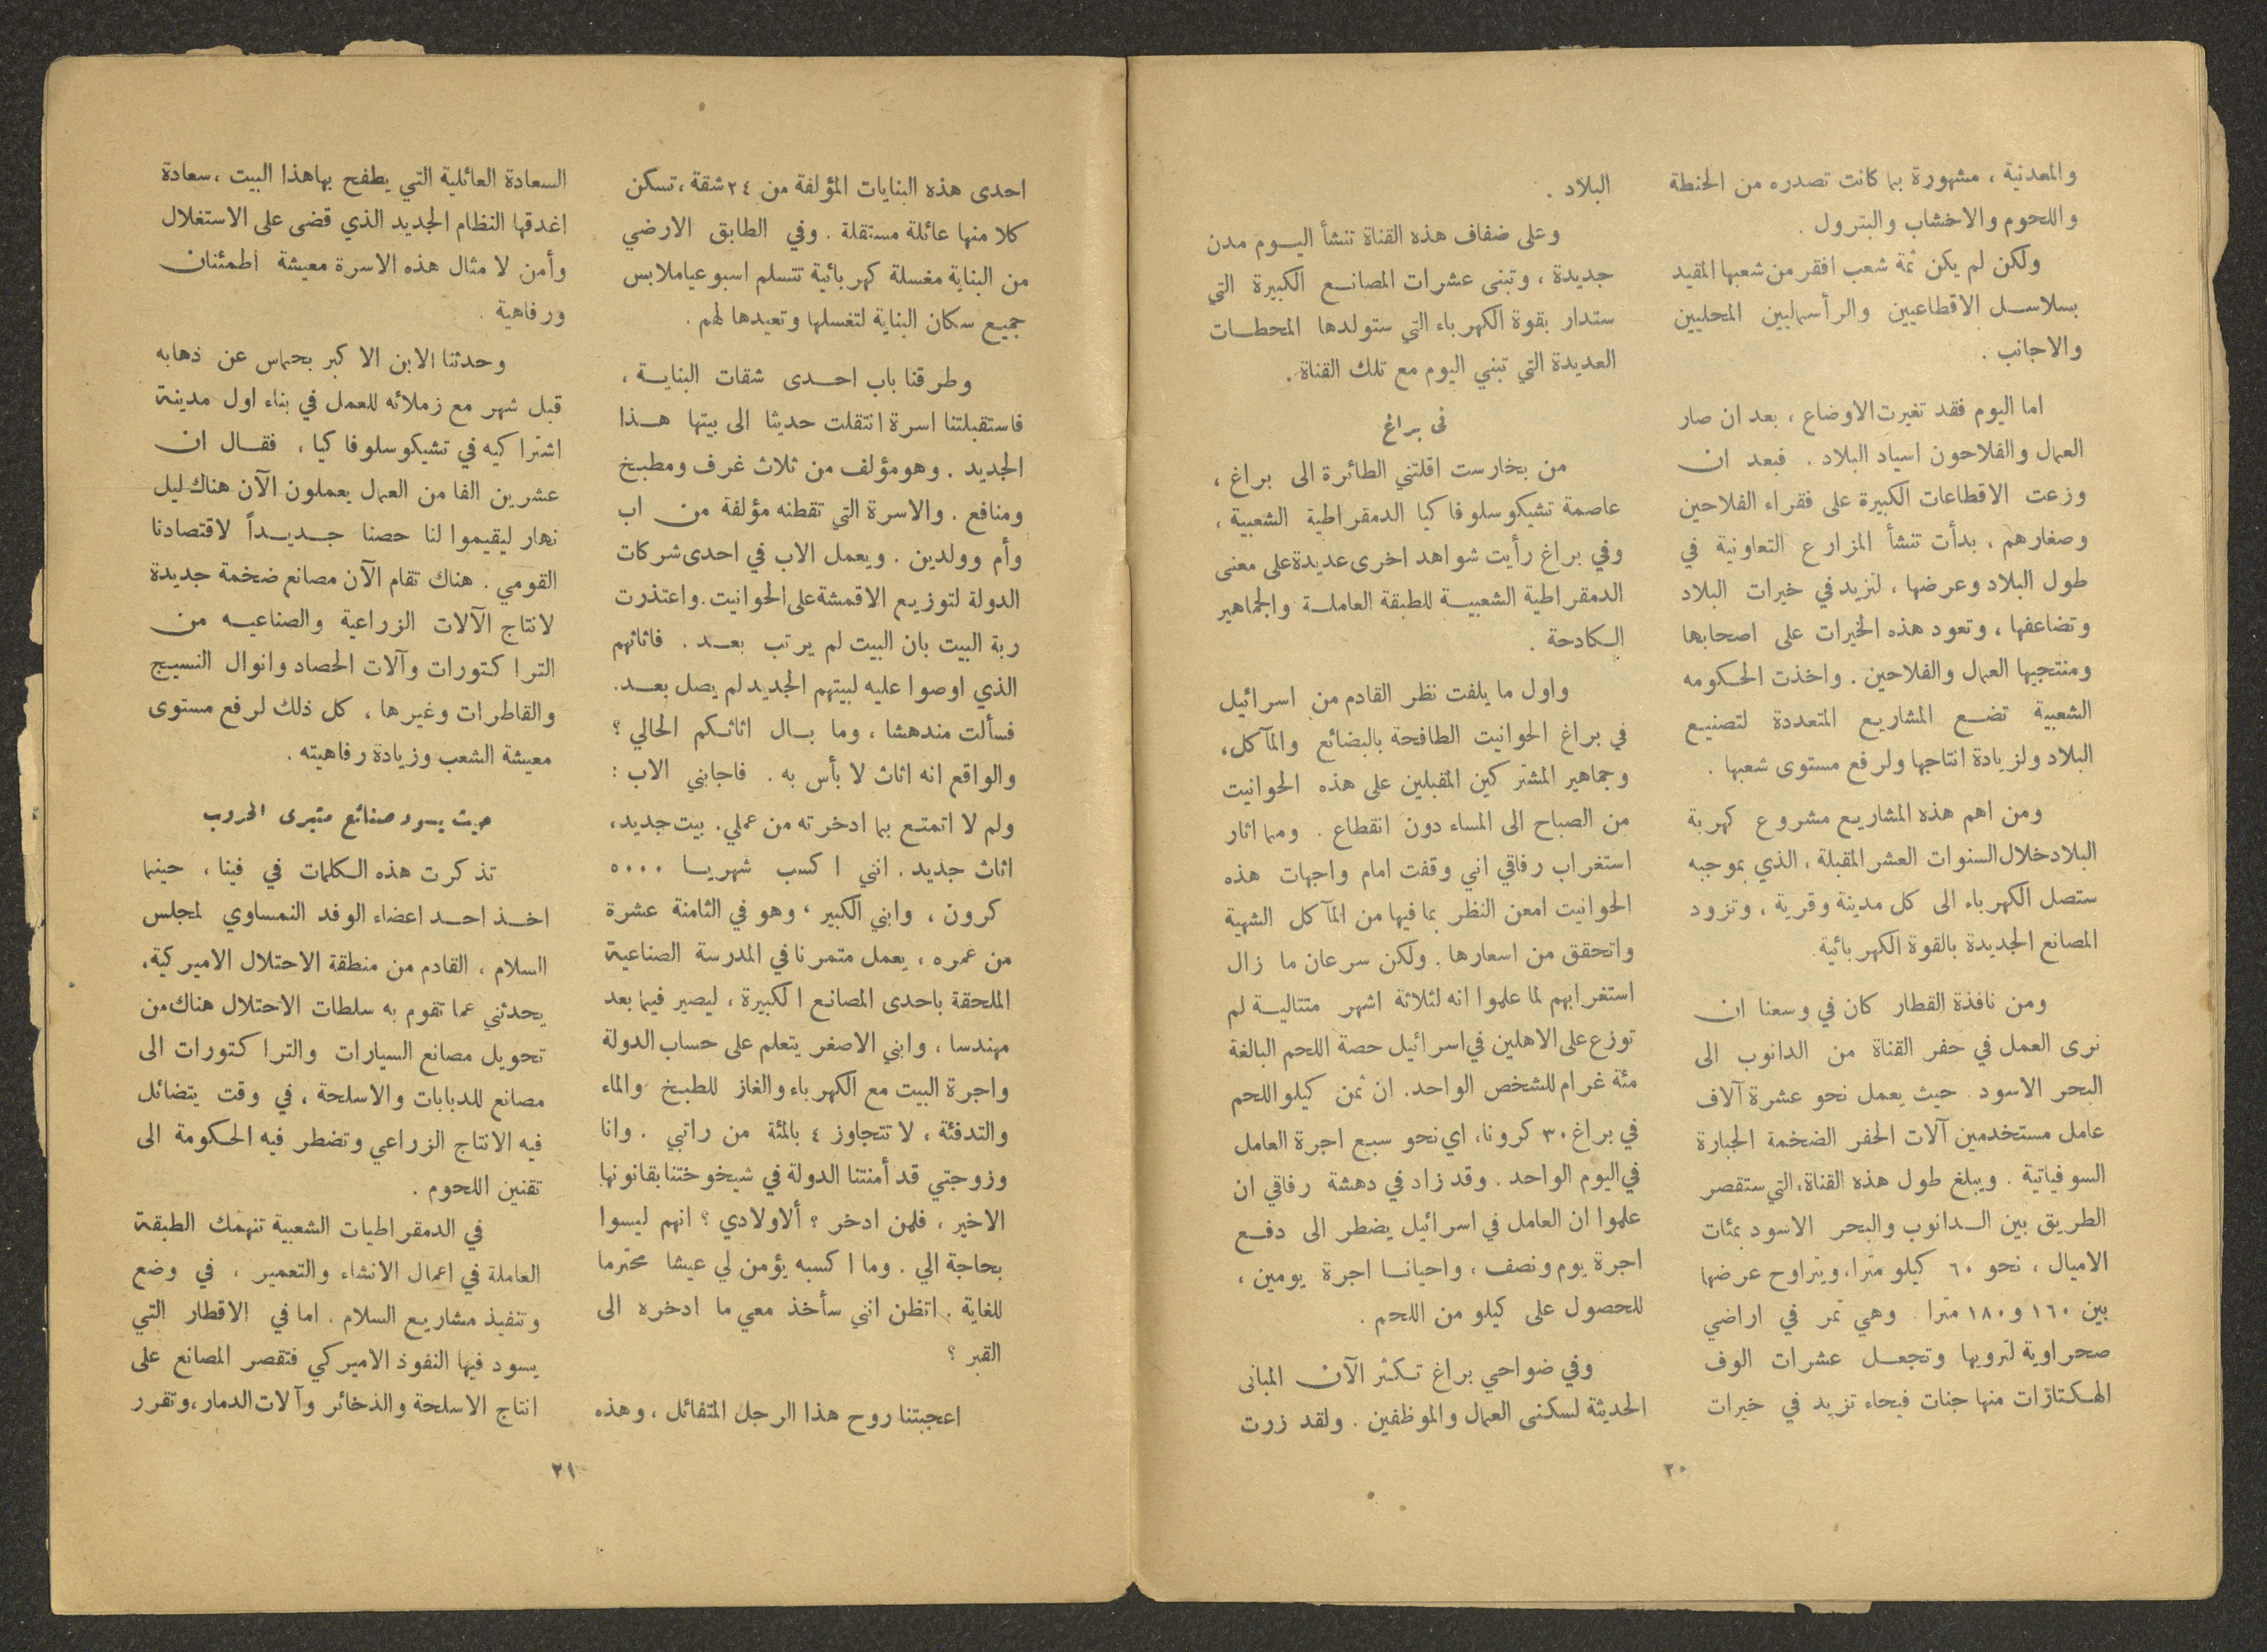 والمعدنية ، مشهورة بما كانت تصدره من الحنطة
واللحوم والاخشاب والبترول .
ولكن لم يكن ثمة شعب افقر من شعبها المقيد
بسلاسل الاقطاعيين والرأسماليين المحليين
والاجانب .
اما اليوم فقد تغيرت الاوضاع ، بعد ان صار
العمال والفلاحون اسياد البلاد . فبعد ان
وزعت الاقطاعات الكبيرة على فقراء الفلاحين
وصغارهم ، بدأت تنشأ المزارع التعاونية في
طول البلاد وعرضها ، لتزيد في خيرات البلاد
وتضاعفها ، وتعود هذه الخيرات على اصحابها
ومنتجيها العمال والفلاحين . واخذت الحكومه
الشعبية تضع المشاريع المتعددة لتصنيع
البلاد ولزيادة انتاجها ولرفع مستوى شعبها .
ومن اهم هذه المشاريع مشروع كهربة
البلاد خلال السنوات العشر المقبلة ، الذي بموجبه
ستصل الكهرباء الى كل مدينة وقرية ، وتزود
المصانع الجديدة بالقوة الكهربائية .
ومن نافذة القطار كان في وسعنا ان
نرى العمل في حفر القناة من الدانوب الى
البحر الاسود حيث يعمل نحو عشرة آلاف
عامل مستخدمين آلات الحفر الضخمة الجبارة
السوفياتية . ويبلغ طول هذه القناة ، التي ستقصر
الطريق بين الدانوب والبحر الاسود بمئات
الاميال ، نحو ٦٠ كيلو مترا ، ويتراوح عرضها
بين ١٦٠ و ١٨٠ مترا . وهي تمر في اراضي
صحراوية لترويها وتجعل عشرات الوف
الهكتارات منها جنات فيحاء تزيد في خيرات
البلاد .
وعلى ضفاف هذه القناة تنشأ اليوم مدن
جديدة ، وتبنى عشرات المصانع الكبيرة التي
ستدار بقوة الكهرباء التي ستولدها المحطات
العديدة التي تبني اليوم مع تلك القناة .
في براغ
من بخارست اقلتني الطائرة الى براغ ،
عاصمة تشيكوسلوفاكيا الدمقراطية الشعبية ،
وفي براغ رأيت شواهد اخرى عديدة على معنى
الدمقراطية الشعبية للطبقة العاملة والجماهير
الكادحة .
واول ما يلفت نظر القادم من اسرائيل
في براغ الحوانيت الطافحة بالبضائع والمآكل ،
وجماهير المشتركين المقبلين على هذه الحوانيت
من الصباح الى المساء دون انقطاع . ومما اثار
استغراب رفاقي اني وقفت امام واجهات هذه
الحوانيت امعن النظر بما فيها من المآكل الشهية
واتحقق من اسعارها . ولكن سرعان ما زال
استغرابهم لما علموا انه لثلاثة اشهر متتالية لم
توزع على الاهلين في اسرائيل حصة اللحم البالغة
مئة غرام للشخص الواحد . ان ثمن كيلو اللحم
في براغ ٣٠ كرونا ، اي نحو سبع اجرة العامل
في اليوم الواحد . وقد زاد في دهشة رفاقي ان
علموا ان العامل في اسرائيل يضطر الى دفع
اجرة يوم ونصف ، واحيانا اجرة يومين ،
للحصول على كيلو من اللحم .
وفي ضواحي براغ تكثر الآن المبانى
الحديثة لسكنى العمال والموظفين . ولقد زرت
٢٠
احدى هذه البنايات المؤلفة من ٢٤ شقة ، تسكن
كلا منها عائلة مستقلة . وفي الطابق الارضي
من البناية مغسلة كهربائية تتسلم اسبوعيا ملابس
جميع سكان البناية لتغسلها وتعيدها لهم .
وطرقنا باب احدى شقات البناية ،
فاستقبلتنا اسرة انتقلت حديثا الى بيتها هذا
الجديد . وهو مؤلف من ثلاث غرف ومطبخ
ومنافع . والاسرة التي تقطنه مؤلفة من اب
وأم وولدين . ويعمل الاب في احدى شركات
الدولة لتوزيع الاقمشة على الحوانيت . واعتذرت
ربة البيت بان البيت لم يرتب بعد . فاثاثهم
الذي اوصوا عليه لبيتهم الجديد لم يصل بعد .
فسألت مندهشا ، وما بال اثاثكم الحالي ؟
والواقع انه اثاث لا بأس به . فاجابني الاب :
ولم لا اتمتع بما ادخرته من عملي . بيت جديد ،
اثاث جديد . انني اكسب شهريا ٥٠٠٠
كرون ، وابني الكبير ، وهو في الثامنة عشرة
من عمره ، يعمل متمرنا في المدرسة الصناعية
الملحقة باحدى المصانع الكبيرة ، ليصير فيما بعد
مهندسا ، وابني الاصغر يتعلم على حساب الدولة
واجرة البيت مع الكهرباء والغاز للطبخ والماء
والتدفئة ، لا تتجاوز ٤ بالمئة من راتبي . وانا
وزوجتي قد أمنتنا الدولة في شيخوختنا بقانونها
الاخير ، فلمن ادخر ؟ ألاولادي ؟ انهم ليسوا
بحاجة الي . وما اكسبه يؤمن لي عيشا محترما
للغاية . اتظن انني سأخذ معي ما ادخره الى
القبر ؟
اعجبتنا روح هذا الرجل المتفائل ، وهذه
السعادة العائلية التي يطفح بها هذا البيت ، سعادة
اغدقها النظام الجديد الذي قضى على الاستغلال
وأمن لامثال هذه الاسرة معيشة اطمئنان
ورفاهية .
وحدثنا الابن الاكبر بحماس عن ذهابه
قبل شهر مع زملائه للعمل في بناء اول مدينة
اشتراكيه في تشيكوسلوفاكيا ، فقال ان
عشرين الفا من العمال يعملون الآن هناك ليل
نهار ليقيموا لنا حصنا جديداً لاقتصادنا
القومي . هناك تقام الآن مصانع ضخمة جديدة
لانتاج الآلات الزراعية والصناعيه من
التراكتورات وآلات الحصاد وانوال النسيج
والقاطرات وغيرها ، كل ذلك لرفع مستوى
معيشة الشعب وزيادة رفاهيته .
حيث يسود صنائع مثيرى الحروب
تذكرت هذه الكلمات في فينا ، حينما
اخذ احد اعضاء الوفد النمساوي لمجلس
السلام ، القادم من منطقة الاحتلال الاميركية ،
يحدثني عما تقوم به سلطات الاحتلال هناك من
تحويل مصانع السيارات والتراكتورات الى
مصانع للدبابات والاسلحة ، في وقت يتضائل
فيه الانتاج الزراعي وتضطر فيه الحكومة الى
تقنين اللحوم .
في الدمقراطيات الشعبية تنهمك الطبقة
العاملة في اعمال الانشاء والتعمير ، في وضع
وتنفيذ مشاريع السلام . اما في الاقطار التي
يسود فيها النفوذ الاميركي فتقصر المصانع على
انتاج الاسلحة والذخائر وآلات الدمار ، وتقرر
٢١